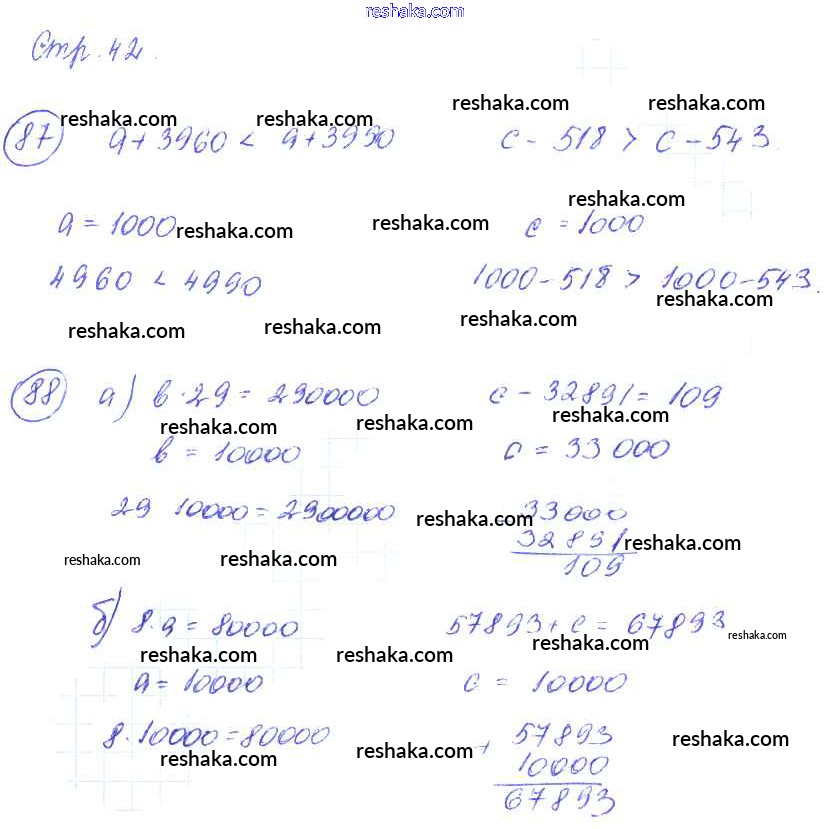 reshaka.com
Стр. 42.
reshaka.com reshaka.com reshaka.com reshaka.com
87 a + 3960 < a + 3990 c - 518 > c - 543.
reshaka.com
a = 1000 c = 1000
reshaka.com reshaka.com
4960 < 4990 1000 - 518 > 1000 - 543.
reshaka.com
reshaka.com reshaka.com reshaka.com
88 а) в · 29 = 290000 c - 32891 = 109
reshaka.com reshaka.com reshaka.com
в = 10000 c = 33 000
29 10000 = 2900000 - 33000
reshaka.com
32891
reshaka.com
reshaka.com reshaka.com
109
б) 8 · a = 80000 57893 + c = 67893
reshaka.com
reshaka.com reshaka.com reshaka.com
a = 10000 c = 10000
8 · 10000 = 80000 + 57893
reshaka.com
reshaka.com reshaka.com
10000
67893